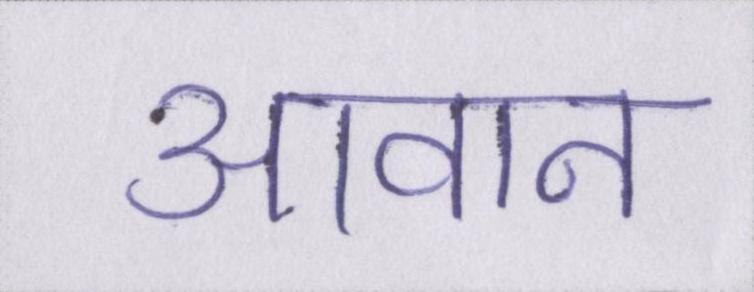 आवान